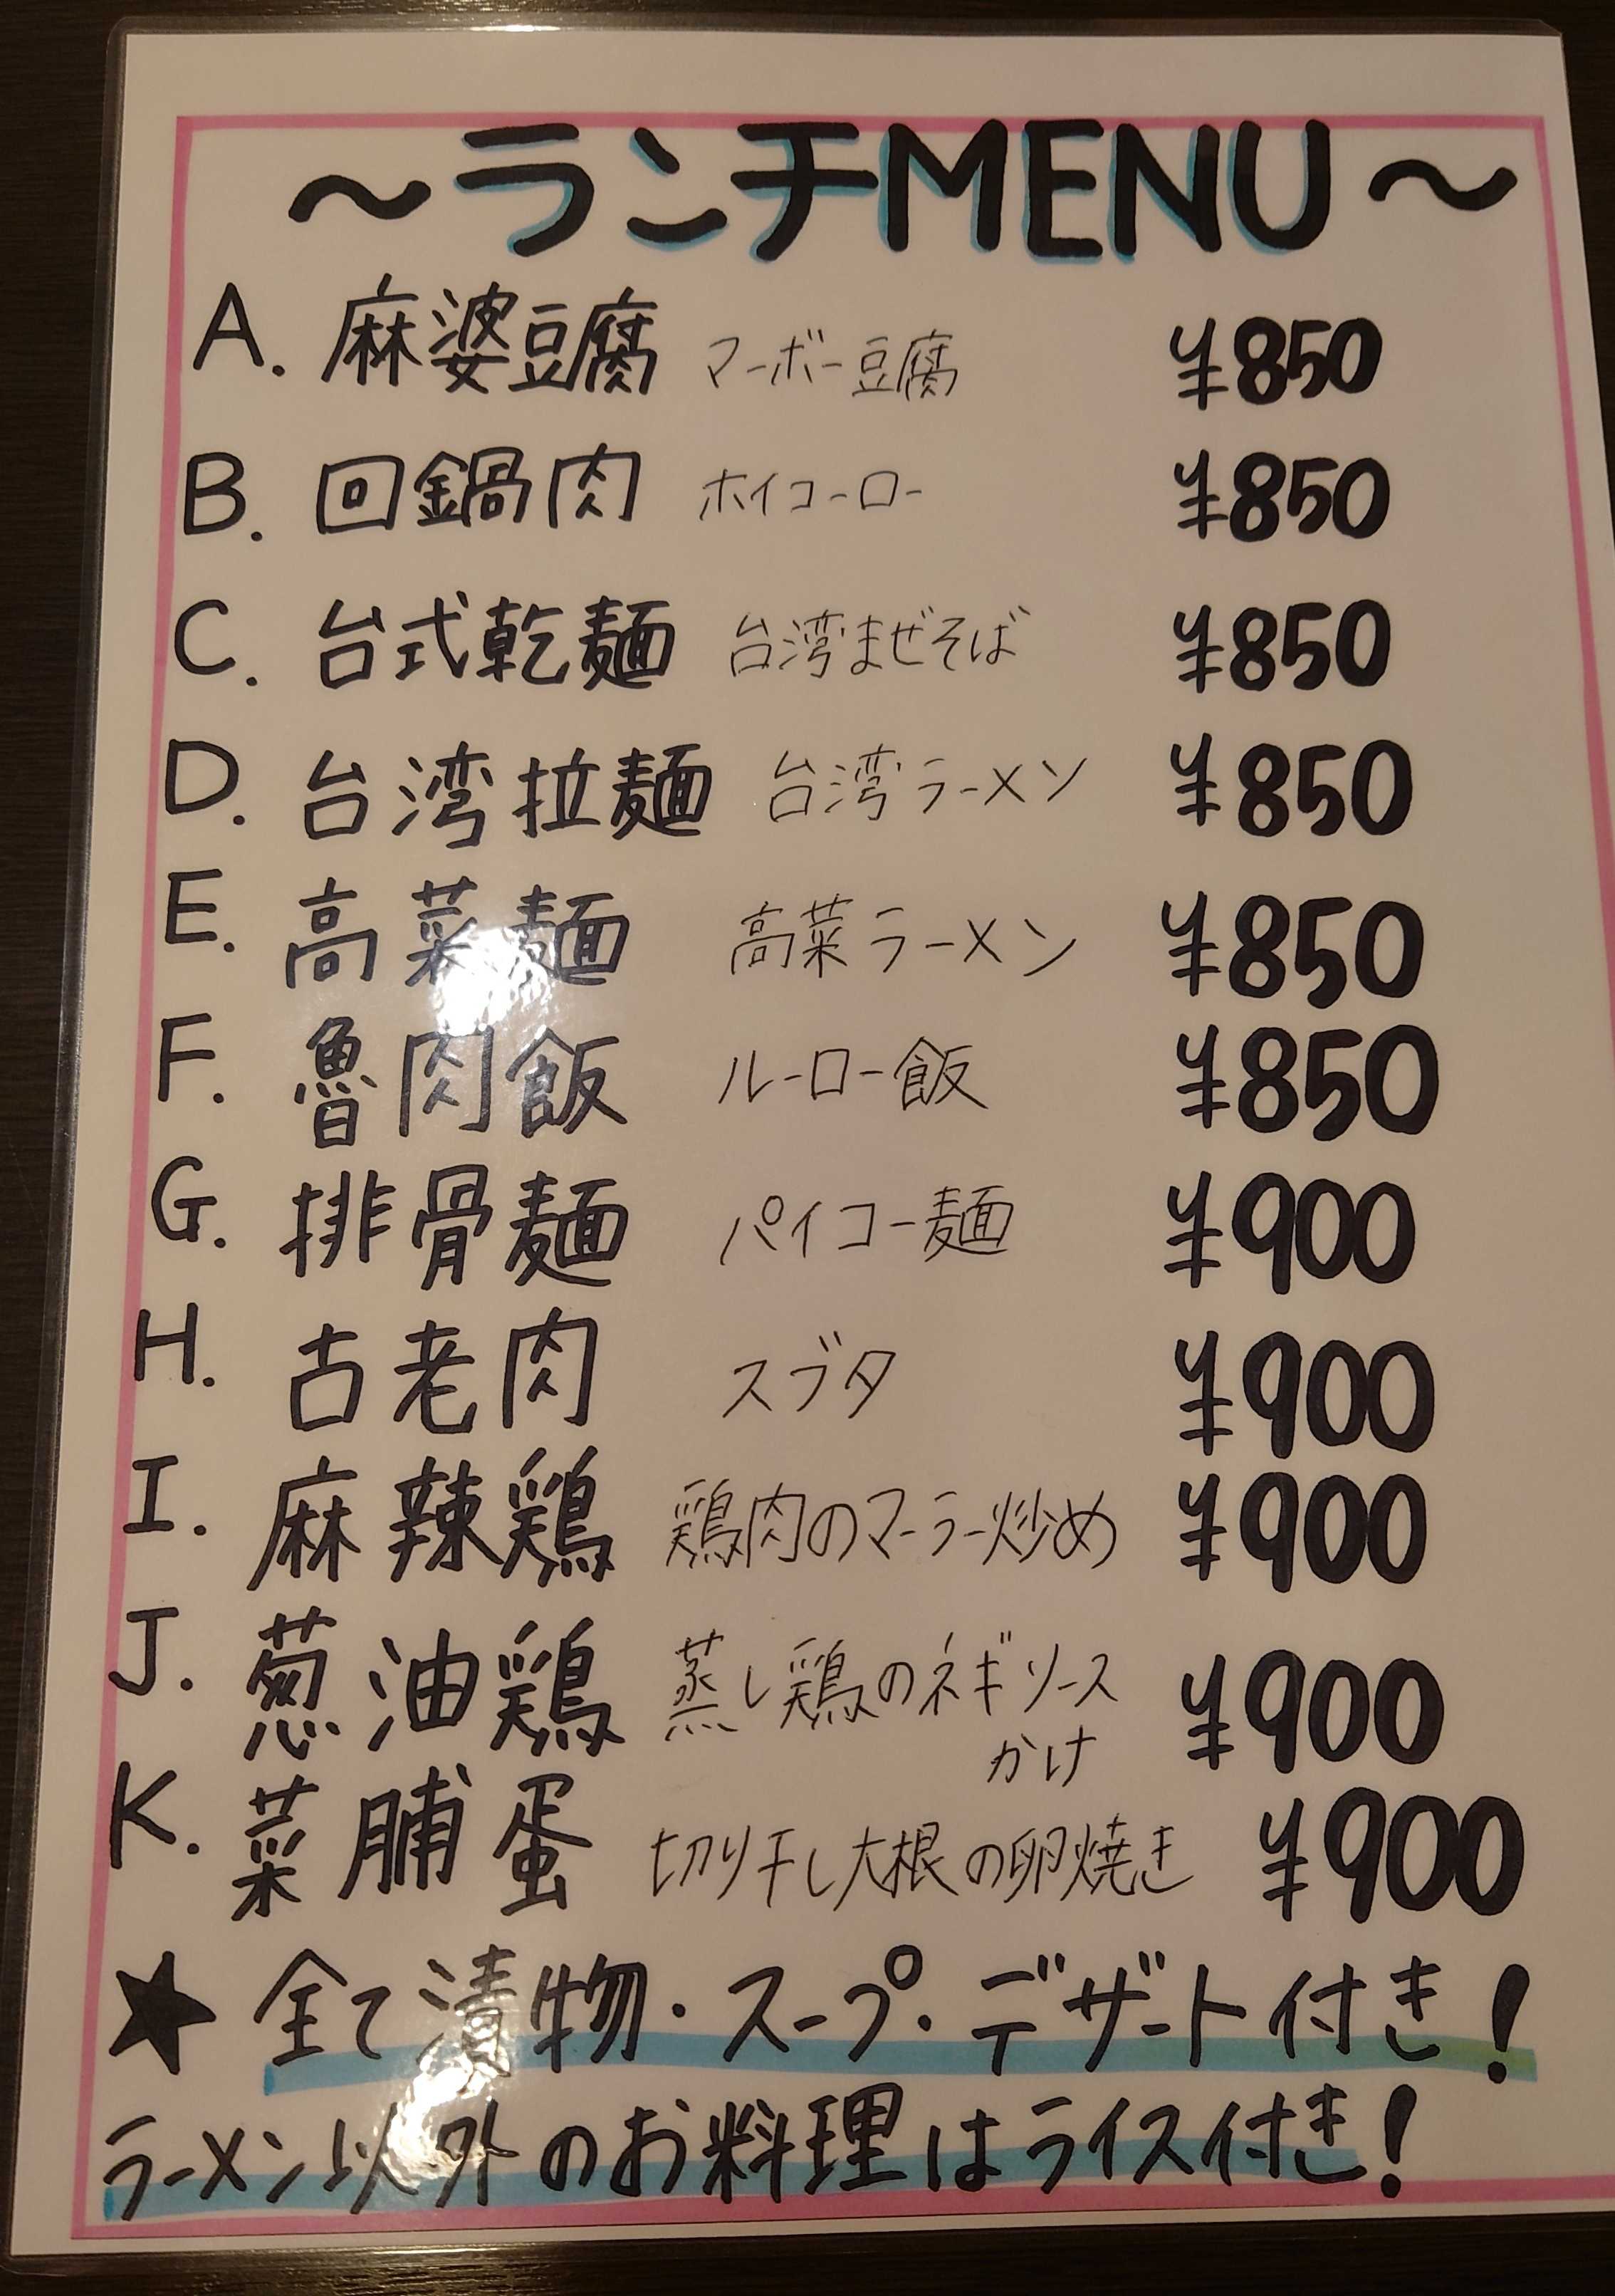 ～ランチMENU～
A. 麻婆豆腐 マーボー豆腐 ¥850
B. 回鍋肉 ホイコーロー ¥850
C. 台式乾麺 台湾まぜそば ¥850
D. 台湾拉麺 台湾ラーメン ¥850
E. 高菜麺 高菜ラーメン ¥850
F. 魯肉飯 ルーロー飯 ¥850
G. 排骨麺 パイコー麺 ¥900
H. 古老肉 スブタ ¥900
I. 麻辣鶏 鶏肉のマーラー炒め ¥900
J. 葱油鶏 蒸し鶏のネギソース ¥900
かけ
K. 菜脯蛋 切り干し大根の卵焼き ¥900
★ 全て漬物・スープ・デザート付き!
ラーメン以外のお料理はライス付き!